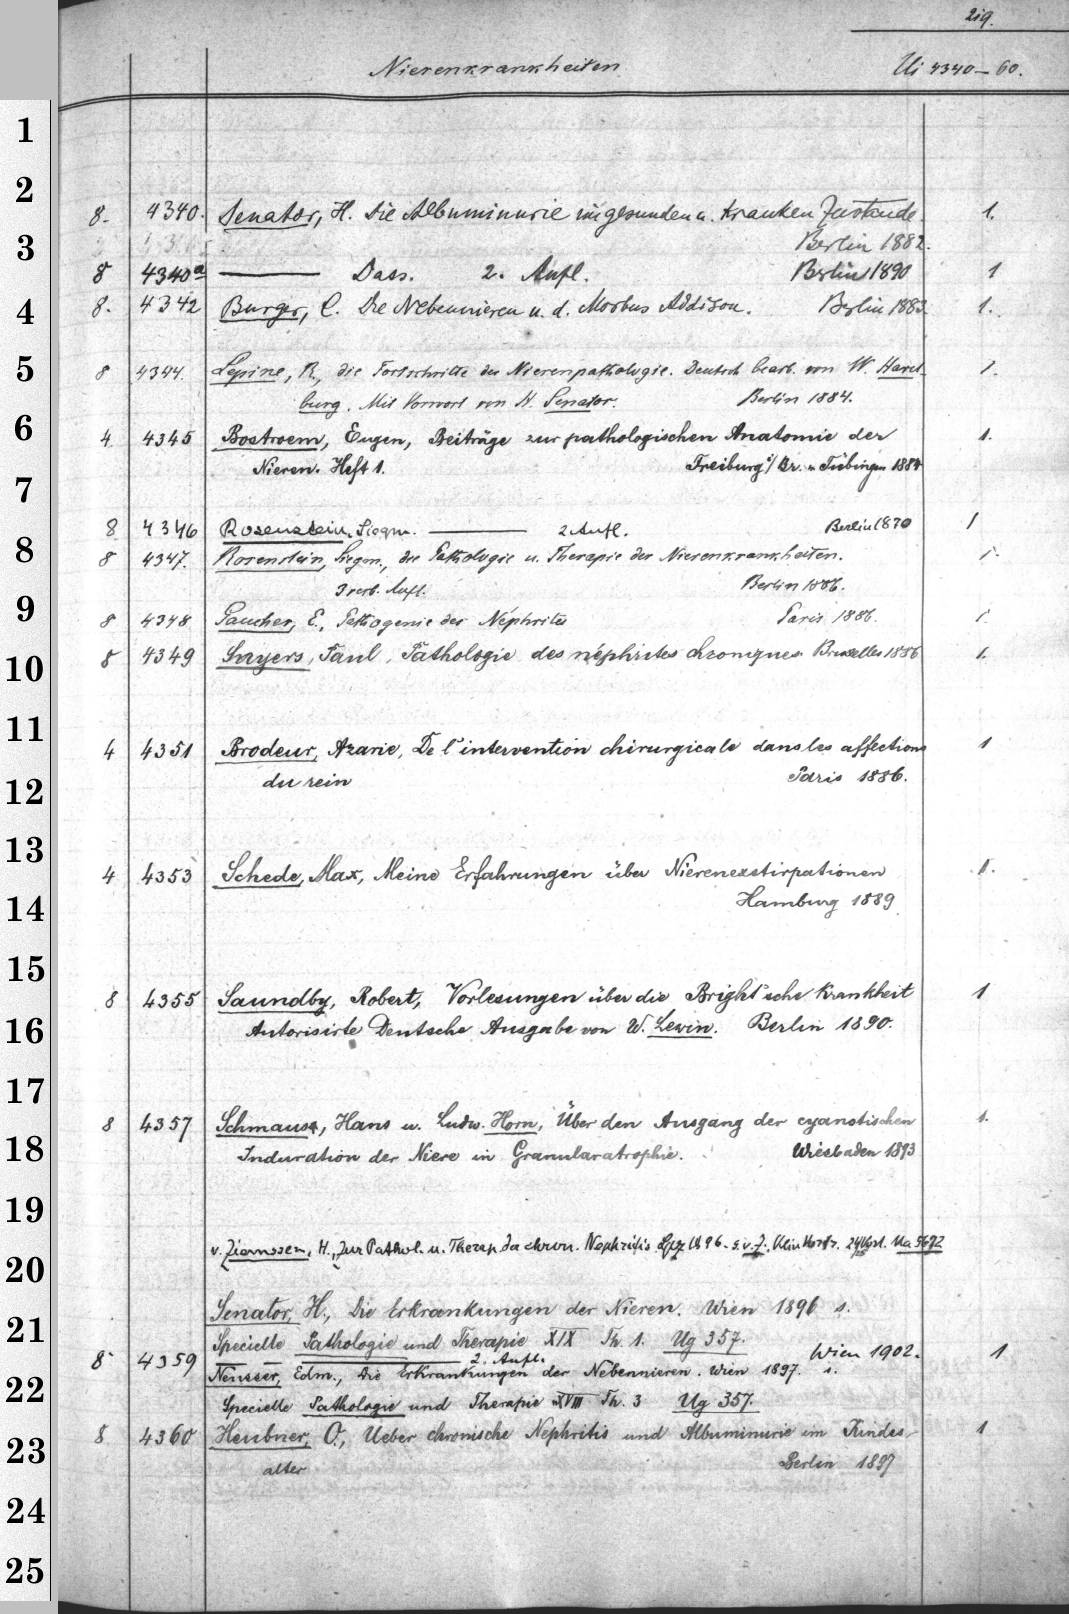 219.
Nierenkrankheiten Ui 4340–60.
1
2
8. 4340. Senator, H. Die Albuminurie im gesunden u. kranken Zustande. 1.
Berlin 1882.
3
8 4340a ——— Dass. 2. Aufl. Berlin 1890 1
4
8. 4342 Burger, C. Die Nebennieren u. d. Morbus Addison. Berlin 1883. 1.
5
8 4344. Lepine, R., die Fortschritte der Nierenpathologie. Deutsch bearb. von W. Havel- 1.
burg. Mit Vorwort von H. Senator. Berlin 1884.
6
4. 4345 Bostroem, Eugen, Beiträge zur pathologischen Anatomie der 1.
Nieren. Heft 1. Freiburg i/Br. u. Tübingen 1884
7
8 4346 Rosenstein, Siegm. ——— 2 Aufl. Berlin 1870 1
8
8 4347. Rosenstein, Siegm., die Pathologie u. Therapie der Nierenkrankheiten. 1.
3 verb. Aufl. Berlin 1886.
9
8 4348 Gaucher, E., Pathogenie des Néphrites Paris 1886. 1.
10
8 4349 Snyers, Paul, Pathologie des néphrites chroniques Bruxelles 1886 1.
11
4 4351 Brodeur, Azarie, De l'intervention chirurgicale dans les affections 1
12
du rein Paris 1886.
13
4 4353 Schede, Max, Meine Erfahrungen über Nierenexstirpationen 1.
14
Hamburg 1889
15
8 4355 Saundby, Robert, Vorlesungen über die Bright'sche Krankheit 1
16
Autorisirte Deutsche Ausgabe von W. Lewin. Berlin 1890.
17
8 4357 Schmaus, Hans u. Ludw. Horn, Über den Ausgang der cyanotischen 1.
18
Induration der Niere in Granularatrophie. Wiesbaden 1893
19
v. Ziemssen, H., Zur Pathol. u. Therap. d. chron. Nephritis Lpz 96. s. v. Z. Klin. Vortr. Ua 5672
20
Senator, H., Die Erkrankungen der Nieren. Wien 1896 s.
21
Specielle Pathologie und Therapie XIX Th. 1. Ug 357.
8 4359 ——— 2. Aufl. Wien 1902. 1
Neusser, Edm., Die Erkrankungen der Nebennieren. Wien 1897. s.
22
Specielle Pathologie und Therapie XVIII Th. 3 Ug 357.
23
8 4360 Heubner, O., Ueber chronische Nephritis und Albuminurie im Kindes- 1
alter Berlin 1897
24
25